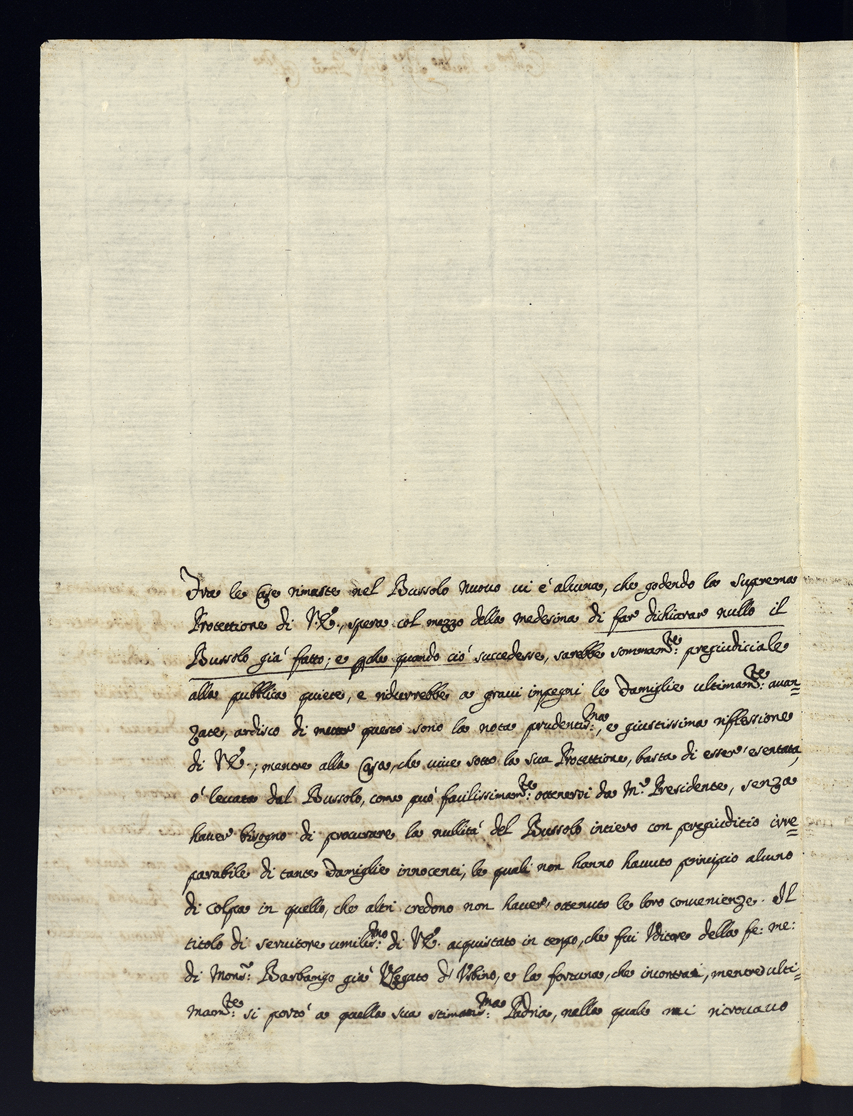 Fra le Case rimaste nel Bussolo nuovo vi é alcuna, che godendo la suprema
Protettione di V.E., spera col mezzo della medesima di far dichiarar nullo il
Bussolo giá fatto; e che quando ció succedesse, sarebbe sommam.te: pregiudiciale
alla pubblica quiete, e ridurrebbe a gravi impegni le Famiglie ultimam.te: avan=
zate, ardisco di metter questo sono la nota prudentis:ma, e giustissima riflessione
di V.E.; mentre alla Casa, che vive sotto la sua Protettione, basta di esser' esentata,
ó levata dal Bussolo, come puó facilissimam.te: ottenersi da M.r Presidente, senza
haver bisogno di procurare la nullitá del Bussolo intiero con pregiuditio irre=
parabile di tante Famiglie innocenti, le quali non hanno havuto principio alcuno
di colpa in quello, che altri credono non haver' ottenuto le loro convenienze. Il
titolo di servitore umilis:mo di V.E. acquistato in tempo, che fui Uditore della fe: me:
di Mons.r Barbarigo giá Vlegato di Urbino, e la fortuna, che incontrai, mentre ulti=
mam.te: si portó a quella sua stimatis:ma Padria, nella quale mi ritrovavo